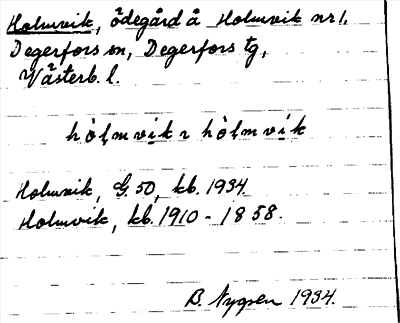 Holmvik, ödegård å Holmvik nr 1.
Degerfors sn, Degerfors tg,
Västerb. l.
hòl̥mvik ɿ hòl̥mvík
Holmvik, G. 50, kb. 1934
Holmvik, kb. 1910 - 1858.
B. Nygren 1934.